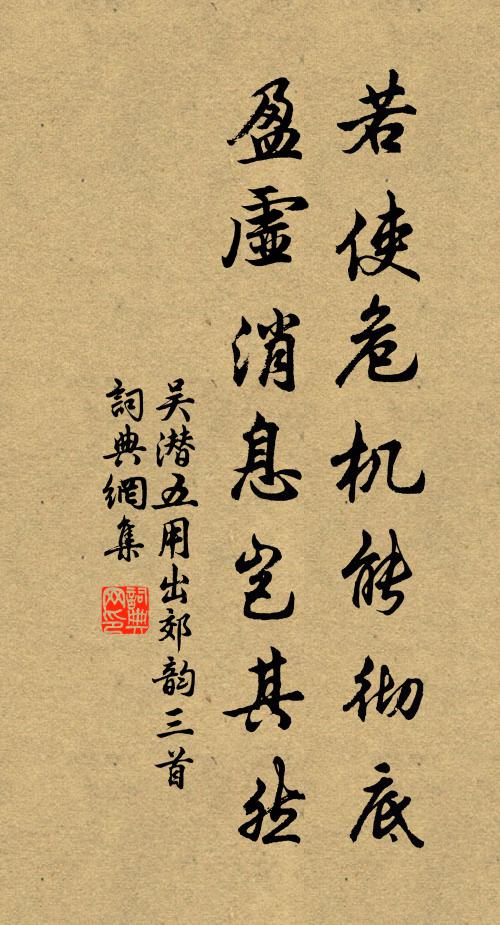 若使危机能彻底
盈虚消息岂其然
吴潜五用出郊韵三首
詞典網集
詞典網印